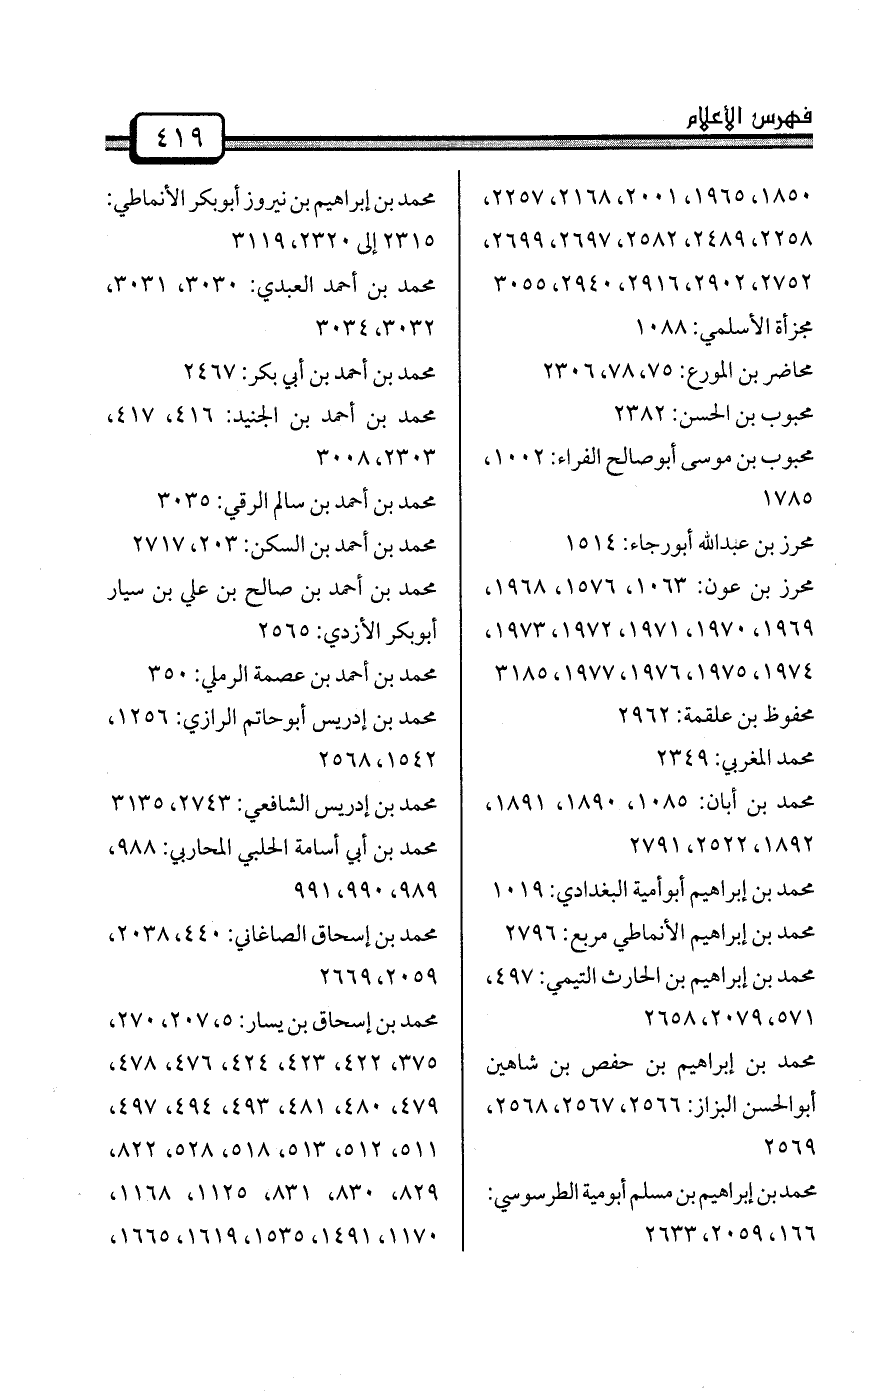 فهرس الأعلام
٤١٩
١٨٥٠، ١٩٦٥، ٢٠٠١، ٢١٦٨، ٢٢٥٧،
٢٢٥٨، ٢٤٨٩، ٢٥٨٢، ٢٦٩٧، ٢٦٩٩،
٢٧٥٢، ٢٩٠٢، ٢٩١٦، ٢٩٤٠، ٣٠٥٥
مجزأة الأسلمي: ١٠٨٨
محاضر بن المورع: ٧٥، ٧٨، ٢٣٠٦
محبوب بن الحسن: ٢٣٨٢
محبوب بن موسى أبوصالح الفراء: ١٠٠٢،
١٧٨٥
محرز بن عبدالله أبورجاء: ١٥١٤
محرز بن عون: ١٠٦٣، ١٥٧٦، ١٩٦٨،
١٩٦٩، ١٩٧٠، ١٩٧١، ١٩٧٢، ١٩٧٣،
١٩٧٤، ١٩٧٥، ١٩٧٦، ١٩٧٧، ٣١٨٥
محفوظ بن علقمة: ٢٩٦٢
محمد المغربي: ٢٣٤٩
محمد بن أبان: ١٠٨٥، ١٨٩٠، ١٨٩١،
١٨٩٢، ٢٥٢٢، ٢٧٩١
محمد بن إبراهيم أبوأمية البغدادي: ١٠١٩
محمد بن إبراهيم الأنماطي مربع: ٢٧٩٦
محمد بن إبراهيم بن الحارث التيمي: ٤٩٧،
٥٧١، ٢٠٧٩، ٢٦٥٨
محمد بن إبراهيم بن حفص بن شاهين
أبوالحسن البزاز: ٢٥٦٦، ٢٥٦٧، ٢٥٦٨،
٢٥٦٩
محمد بن إبراهيم بن مسلم أبومية الطرسوسي:
١٦٦، ٢٠٥٩، ٢٦٣٣
محمد بن إبراهيم بن نيروز أبوبكر الأنماطي:
٢٣١٥ إلى ٢٣٢٠، ٣١١٩
محمد بن أحمد العبدي: ٣٠٣٠، ٣٠٣١،
٣٠٣٢، ٣٠٣٤
محمد بن أحمد بن أبي بكر: ٢٤٦٧
محمد بن أحمد بن الجنيد: ٤١٦، ٤١٧،
٢٣٠٣، ٣٠٠٨
محمد بن أحمد بن سالم الرقي: ٣٠٣٥
محمد بن أحمد بن السكن: ٢٠٣، ٢٧١٧
محمد بن أحمد بن صالح بن علي بن سيار
أبوبكر الأزدي: ٢٥٦٥
محمد بن أحمد بن عصمة الرملي: ٣٥٠
محمد بن إدريس أبوحاتم الرازي: ١٢٥٦،
١٥٤٢، ٢٥٦٨
محمد بن إدريس الشافعي: ٢٧٤٣، ٣١٣٥
محمد بن أبي أسامة الحلبي المحاربي: ٩٨٨،
٩٨٩، ٩٩٠، ٩٩١
محمد بن إسحاق الصاغاني: ٤٤٠، ٢٠٣٨،
٢٠٥٩، ٢٦٦٩
محمد بن إسحاق بن يسار: ٥، ٢٠٧، ٢٧٠،
٣٧٥، ٤٢٢، ٤٢٣، ٤٢٤، ٤٧٦، ٤٧٨،
٤٧٩، ٤٨٠، ٤٨١، ٤٩٣، ٤٩٤، ٤٩٧،
٥١١، ٥١٢، ٥١٣، ٥١٨، ٥٢٨، ٨٢٢،
٨٢٩، ٨٣٠، ٨٣١، ١١٢٥، ١١٦٨،
١١٧٠، ١٤٩١، ١٥٣٥، ١٦١٩، ١٦٦٥،